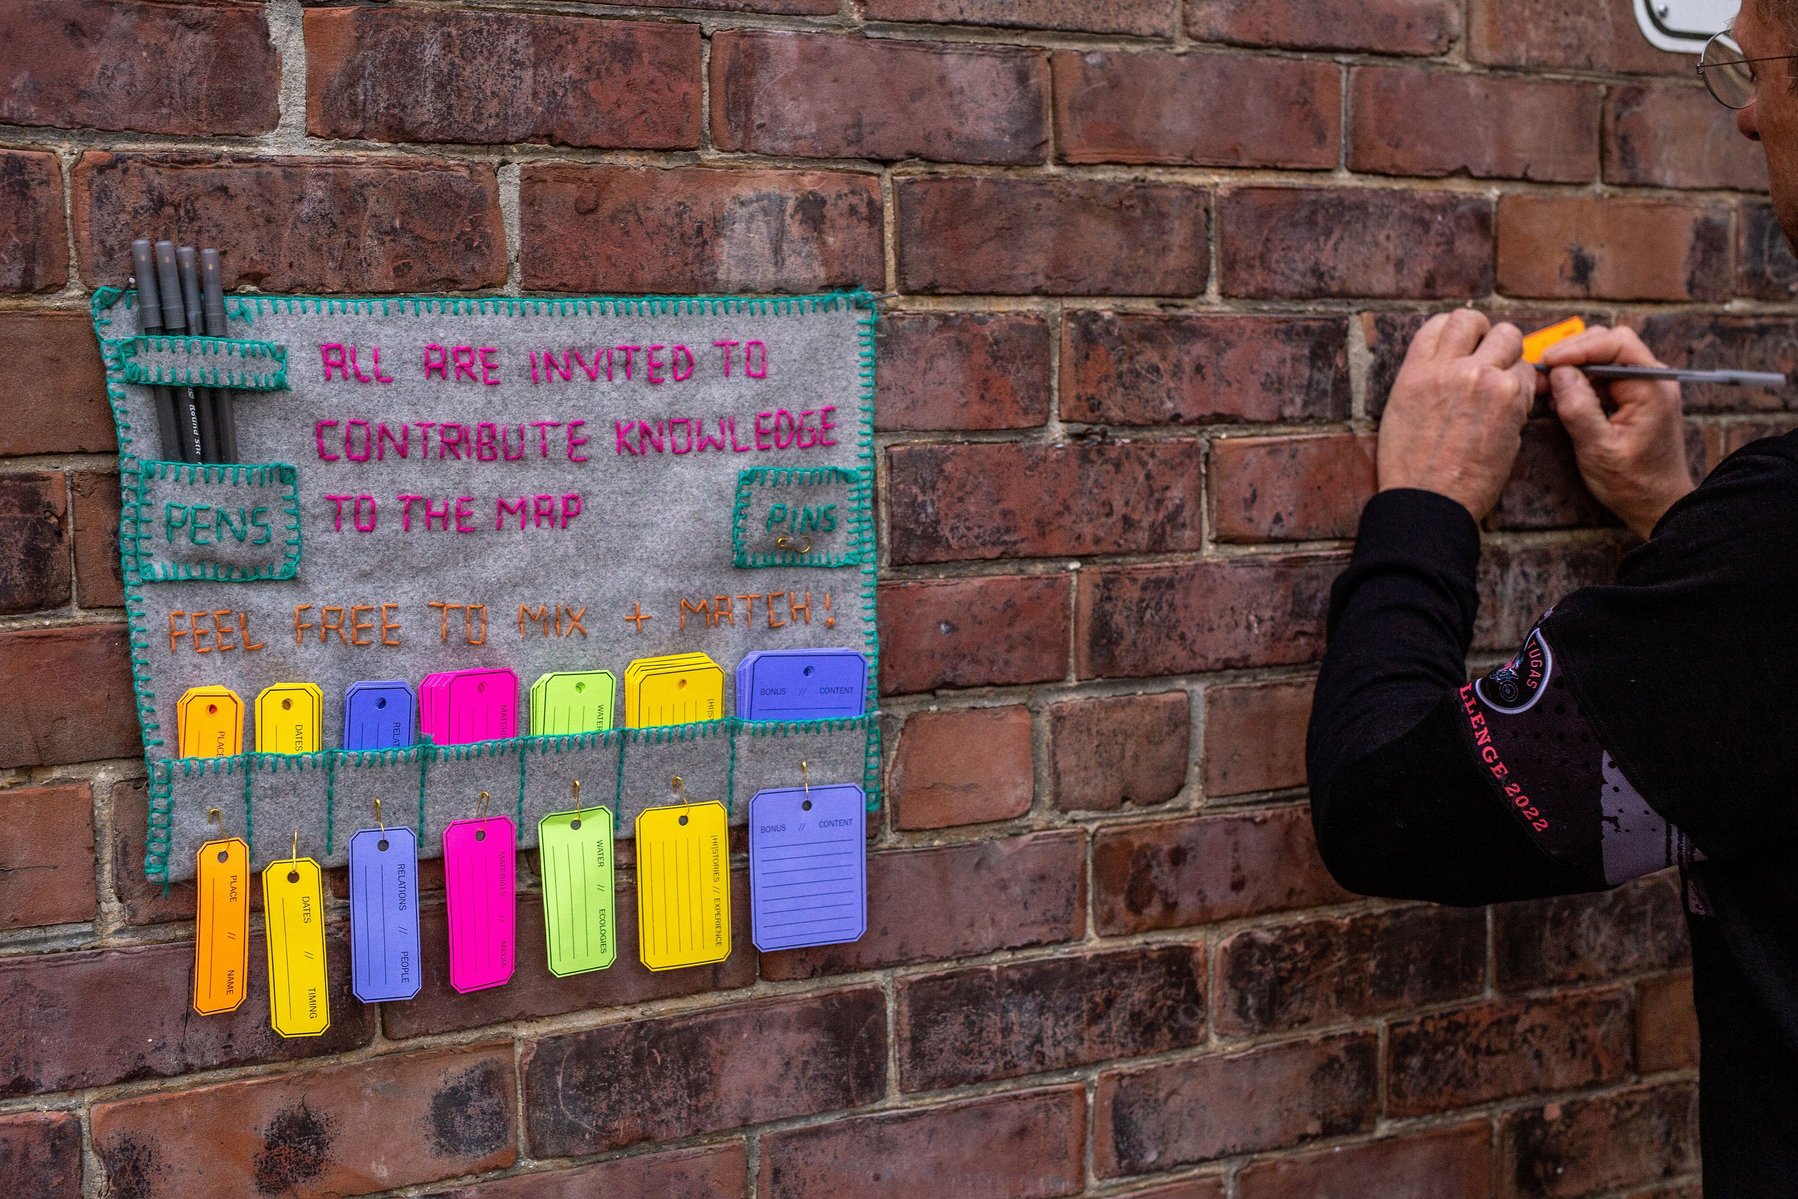 ALL ARE INVITED TO
CONTRIBUTE KNOWLEDGE
TO THE MAP
PENS
PINS
FEEL FREE TO MIX + MATCH!
PLACE
DATES
WATER
BONUS // CONTENT
PLACE // NAME
DATES // TIMING
RELATIONS // PEOPLE
MATERIALS // MEDIA
WATER // ECOLOGIES
[HI]STORIES // EXPERIENCE
BONUS // CONTENT
TUGAS
LLENGE 2022